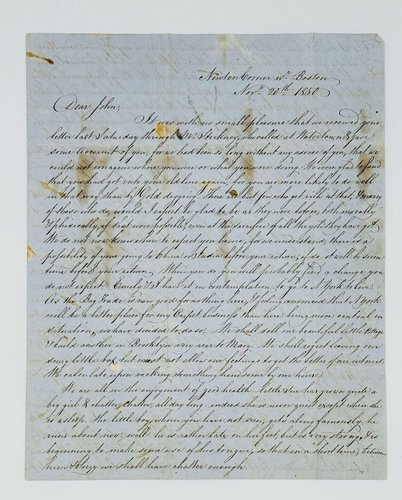 Newton Corner nr. Boston
Novr. 20th 1850
Dear John,
It was with no small pleasure that we received your
letter last Saturday through Mr. who called at Watertown & gave
some account of you, for we had been so long without any news of you, that we
could not imagine where you were or what you were doing. We were glad to find
that you had got into your old line again, for you are more likely to do well
in that way than by Gold digging. There are but few who get rich at that, & many
of those who do, would I expect be glad to be as they were before, both morally
& physically, if that was possible, even at the sacrifice of all the gold they have got.
We do not now know when to expect you home, for as we understand, there is a
possibility of your going to China or India before you return, if so it will be some
time before your return. When you do you will probably find a change you
do not expect. Emily & I have it in contemplation to go to N. York to live
As the Trade is very good for nothing here, & feeling convinced that N. York
will be a better place for my business than here, being more central in
situation, we have decided to do so. We shall sell our beautiful little
& build another in Brooklyn very near to Mary. We shall regret leaving our
snug little box, but must not allow our feelings to get the better of our interest.
We calculate upon making something handsome by our house.
We are all in the enjoyment of good health. Little has grown quite a
big girl & chatters all day long, indeed she is never quiet except when she
is asleep. The little boy, whom you have not seen, gets along famously, he
runs about now, will he is rather late on his feet, but is very strong, & is
beginning to make some use of his tongue, so that in a short time, between
him & we shall have chatter enough.